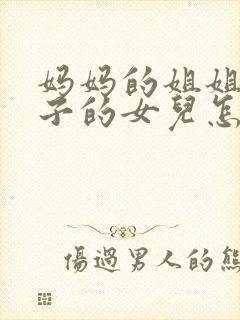 妈妈的姐姐
子的女兒怎
傷過男人的熊